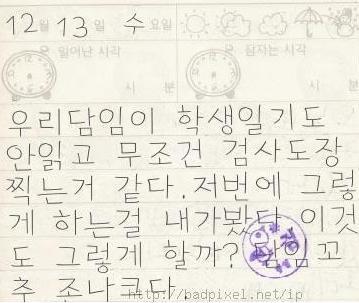 12월 13일 수요일
일어난 시각 잠자는 시각
시 분 시 분
우리담임이 학생일기도
안읽고 무조건 검사도장
찍는거 같다. 저번에 그렇
게 하는걸 내가봤다 이것
도 그렇게 할까? 담임꼬
추 조나크다
http://badpixel.net/jp